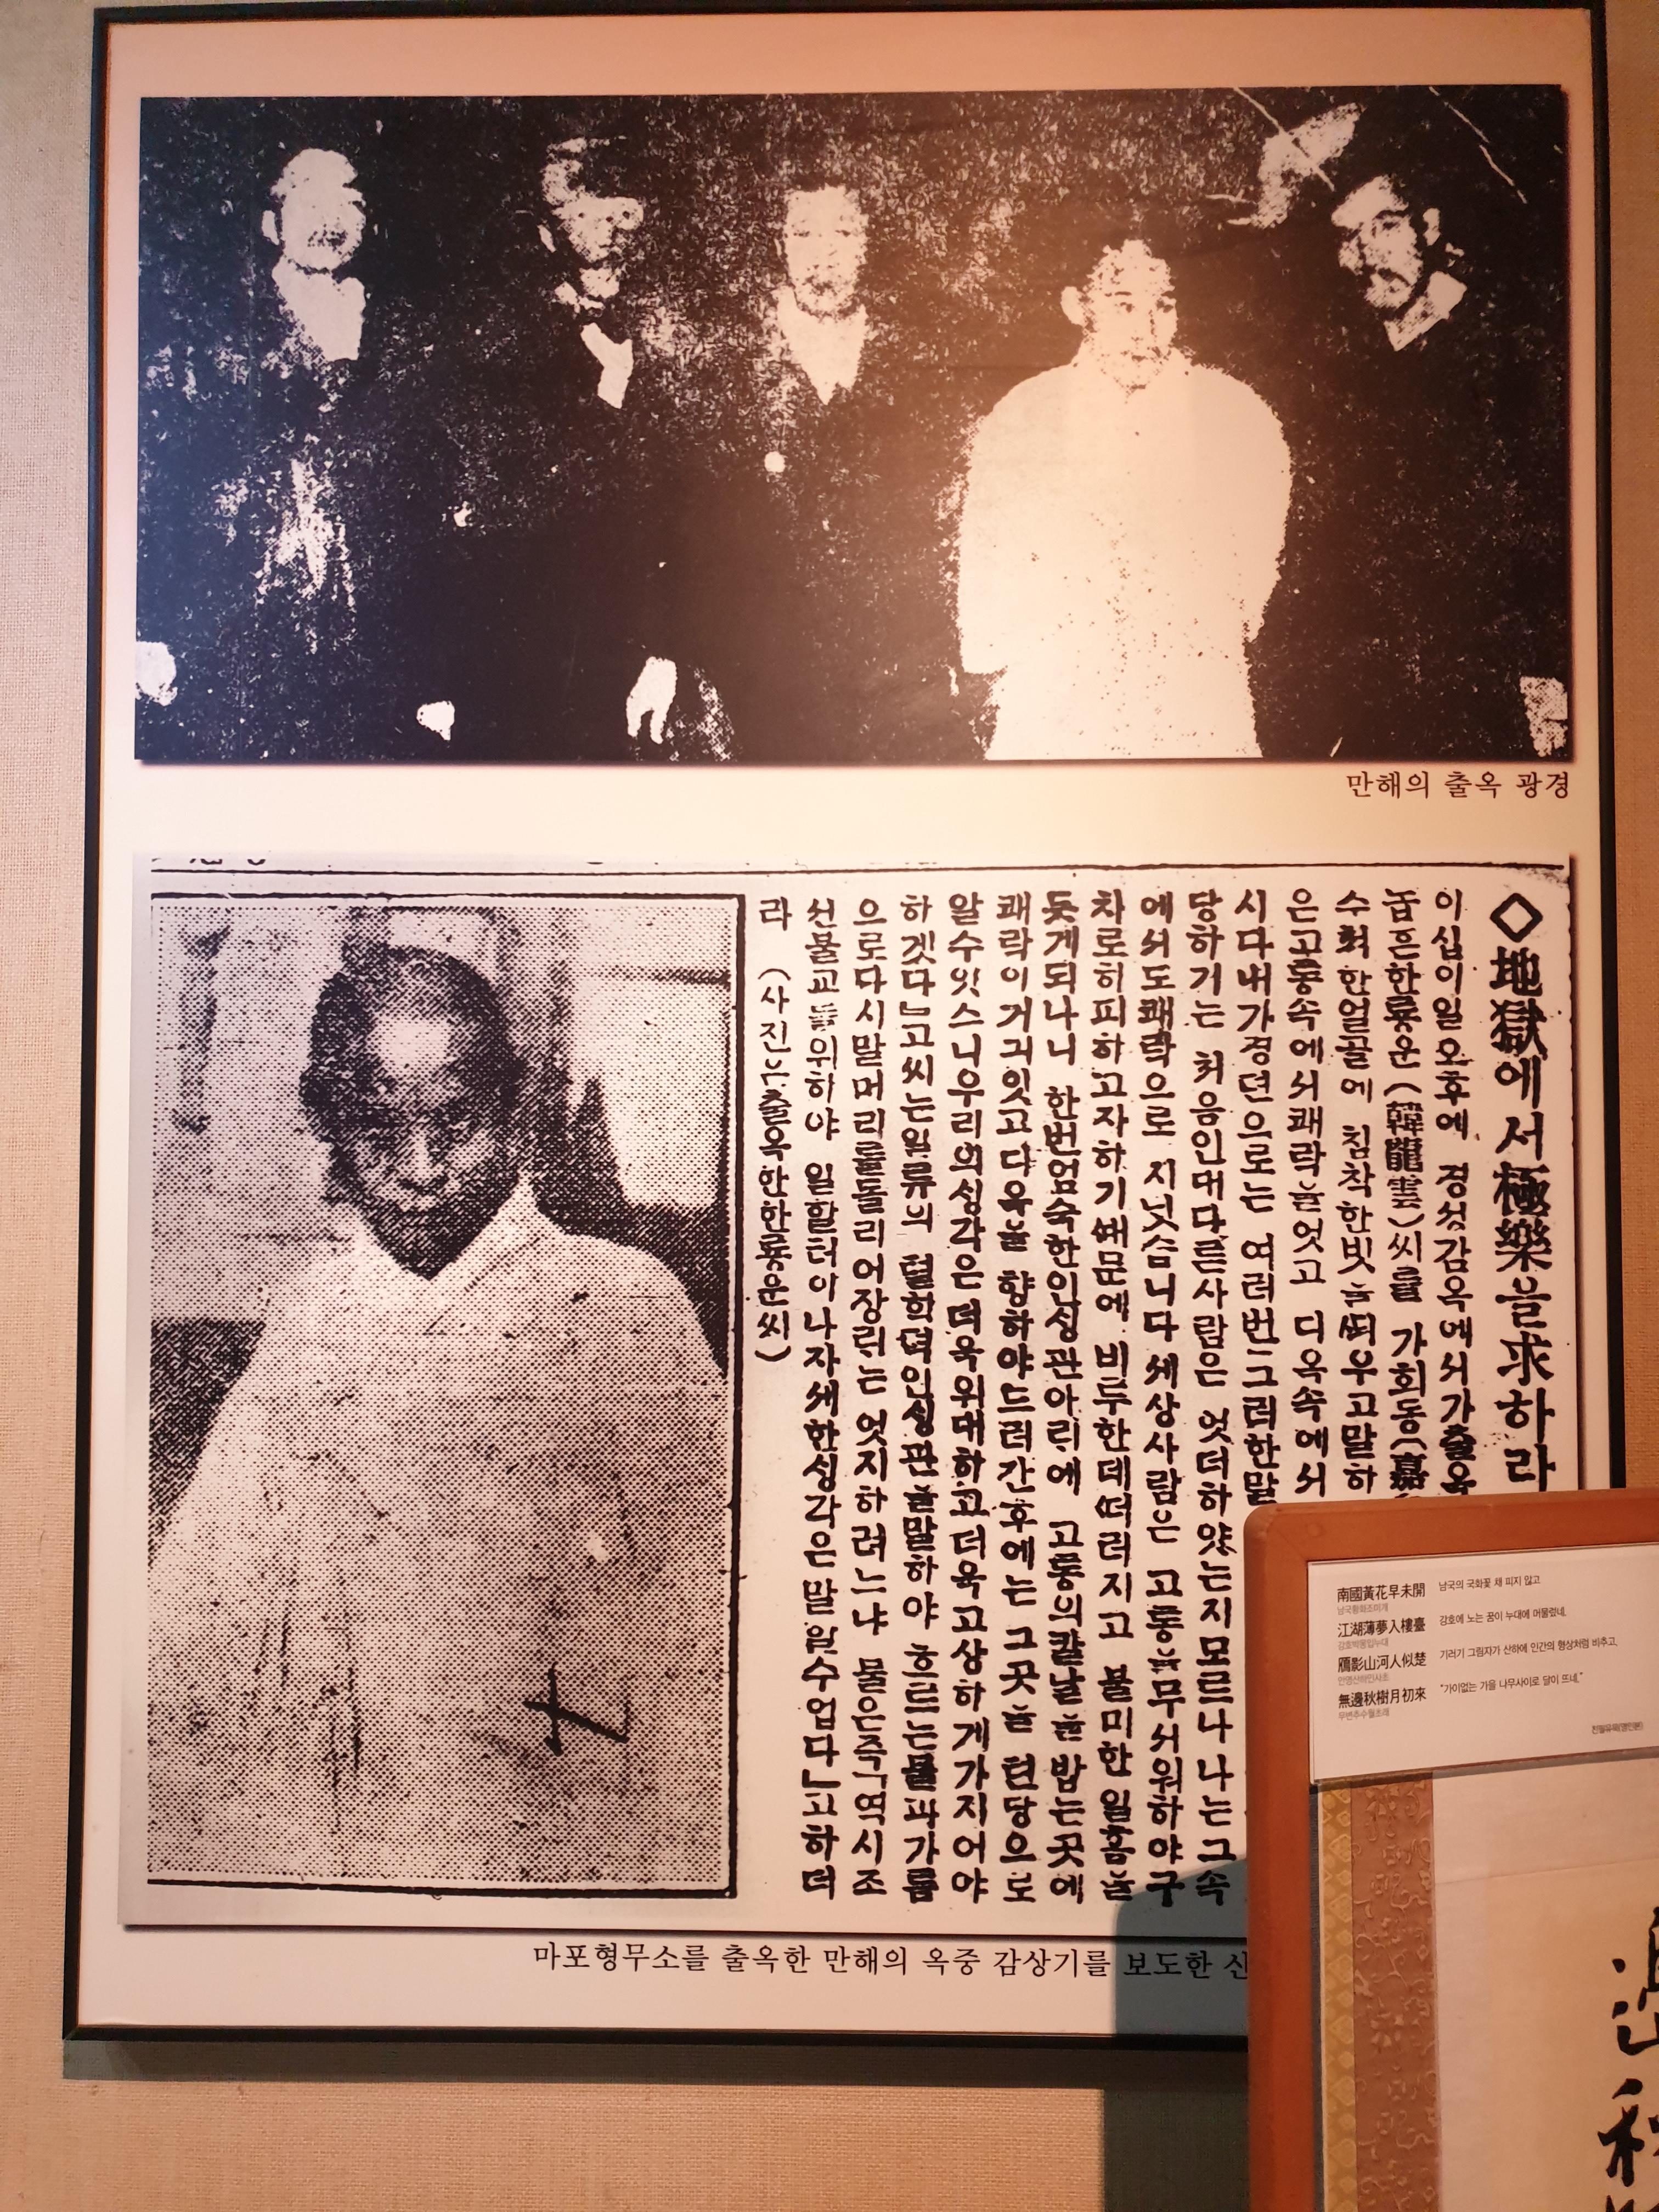 만해의 출옥 광경
◇地獄에서極樂을求하라
이십이일오후에 경성감옥에서가출옥
놉흔한룡운(韓龍雲)씨를 가회동(嘉
수척한얼골에 침착한빗을ᄯᅴ우고말하
은고통속에서쾌락을엇고 디옥속에서
시다내가경뎐으로는 여러번그러한말
당하기는 처음인대다른사람은 엇더하얏는지모르나 나는그속
에서도쾌락으로 지넛습니다 세상사람은 고통을무서워하야구
차로히피하고자하기ᄯᅢ문에 비루한데ᄯᅥ러지고 불미한일홈을
듯게되나니 한번엄숙한인생관아래에 고통의칼날을밥는곳에
쾌락이거긔잇고디옥을 향하야드러간후에는 그곳을 텬당으로
알수잇스니우리의생각은더욱위대하고더욱고상하게가지어야
하겟다」고씨는일류의 텰학뎍인생관을말하야 흐르는물과가틈
으로다시말머리를돌리어장래는 엇지하려느냐 물은즉「역시조
선불교를위하야 일할터이나자세한생각은말알수업다」고하더
라 (사진은출옥한한룡운씨)
마포형무소를 출옥한 만해의 옥중 감상기를 보도한 신
南國黃花早未開 남국의 국화꽃 채 피지 않고
남국황화조미개
江湖薄夢入樓臺 강호에 노는 꿈이 누대에 머물렀네.
강호박몽입누대
鴈影山河人似楚 기러기 그림자가 산하에 인간의 형상처럼 비추고,
안영산하인사초
無邊秋樹月初來 "가이없는 가을 나무사이로 달이 뜨네."
무변추수월초래
친필유묵(영인본)